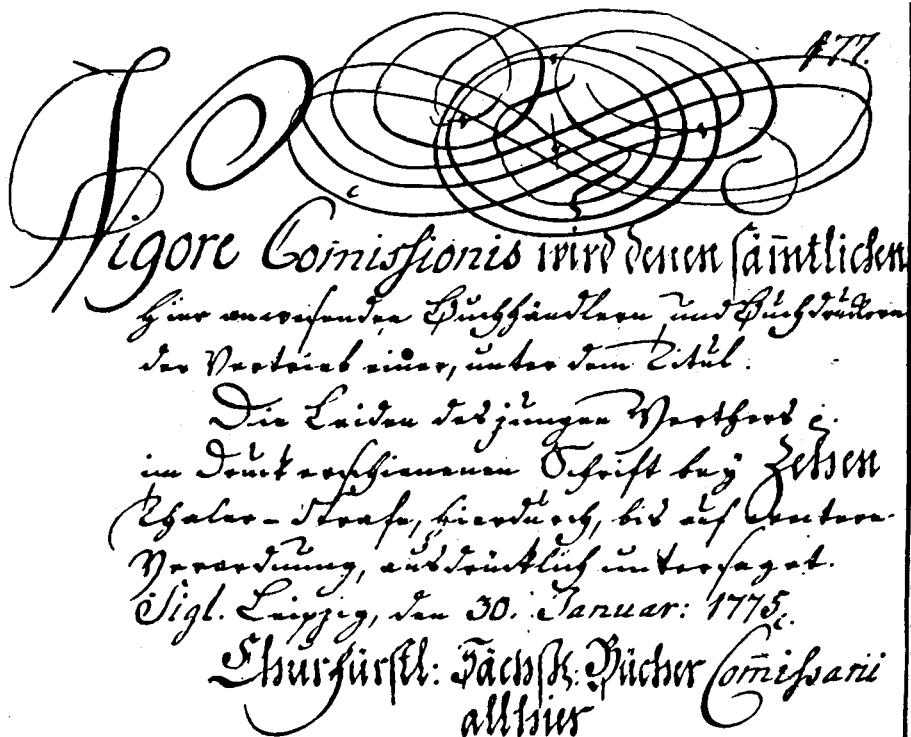 177.
Vigore Com̄issionis wird denen säm̄tlichen
hier anwesenden Buchhändlern, und Buchdruckern
der Vertrieb einer, unter dem Titul:
Die Leiden des jungen Werthers
im Druck erschienenen Schrift bey Zehen
Thaler-Strafe, hierdurch, bis auf weitere
Verordnung, ausdrücklich untersaget.
Sigl. Leipzig, den 30. Januar: 1775.
Churfürstl: Sächsß: Bücher Com̄issarii
allhier